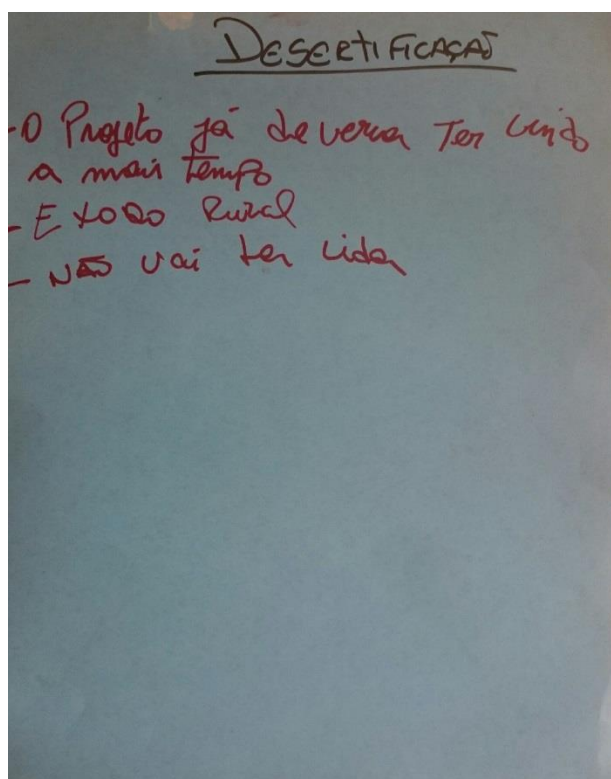 DESERTIFICAÇÃO
-O Projeto já deveria Ter vindo
a mais Tempo
- EXODO Rural
- NÃO vai ter vida